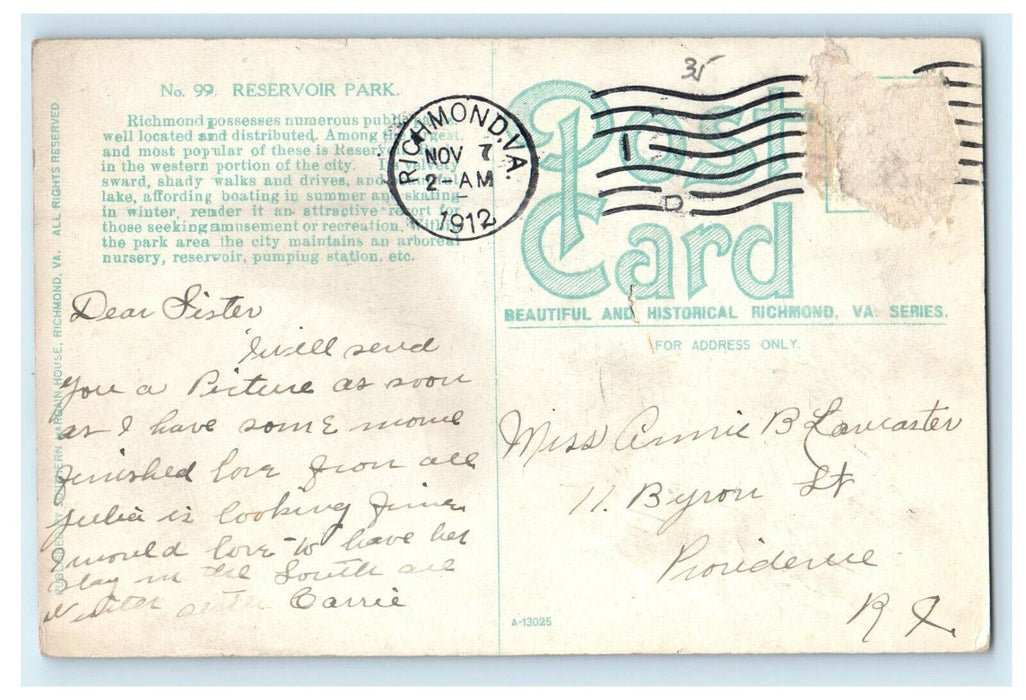 No. 99. RESERVOIR PARK.
Richmond possesses numerous
well located and distributed. Among
and most popular of these is
in the western portion of the city.
sward, shady walks and drives, and
lake, affording boating in summer and skating
in winter, render it an attractive resort for
those seeking amusement or recreation. Within
the park area the city maintains an arboreal
nursery, reservoir, pumping station, etc.
PUBLISHED BY SOUTHERN BARGAIN HOUSE, RICHMOND, VA. ALL RIGHTS RESERVED
Dear Sister
I will send
you a Picture as soon
as I have some more
finished love from all
Julia is looking fine
I would love to have her
stay in the South all
Winter sister Carrie
RICHMOND, VA.
NOV 7
2-AM
1912
35
1
D
Post
Card
BEAUTIFUL AND HISTORICAL RICHMOND, VA. SERIES.
FOR ADDRESS ONLY.
Miss Annie B Lancaster
11. Byron St
Providence
R I.
A-13025